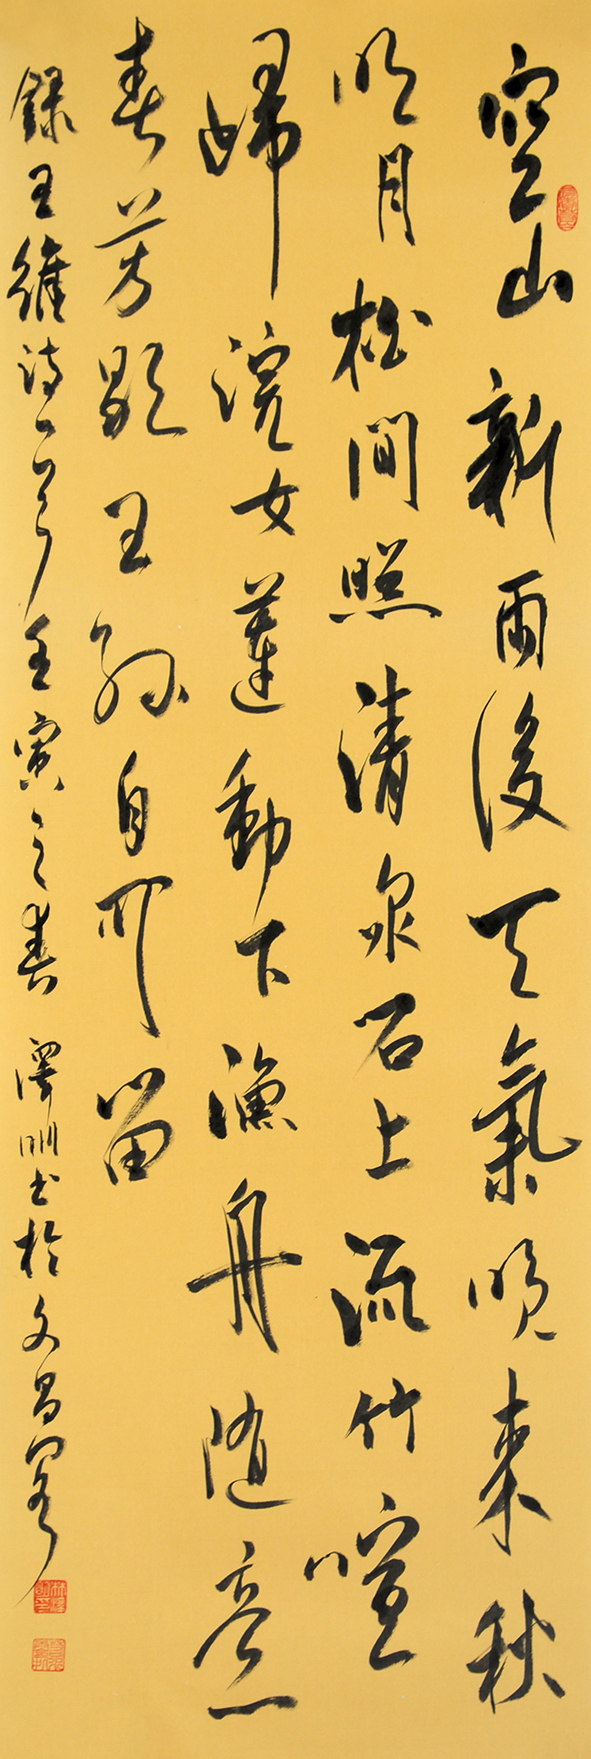 空山新雨後天氣晚来秋
明月松間照清泉石上流竹喧
歸浣女蓮動下漁舟随意
春芳歇王孫自可留
錄王維诗一首壬寅之春澤明书於文昌閣